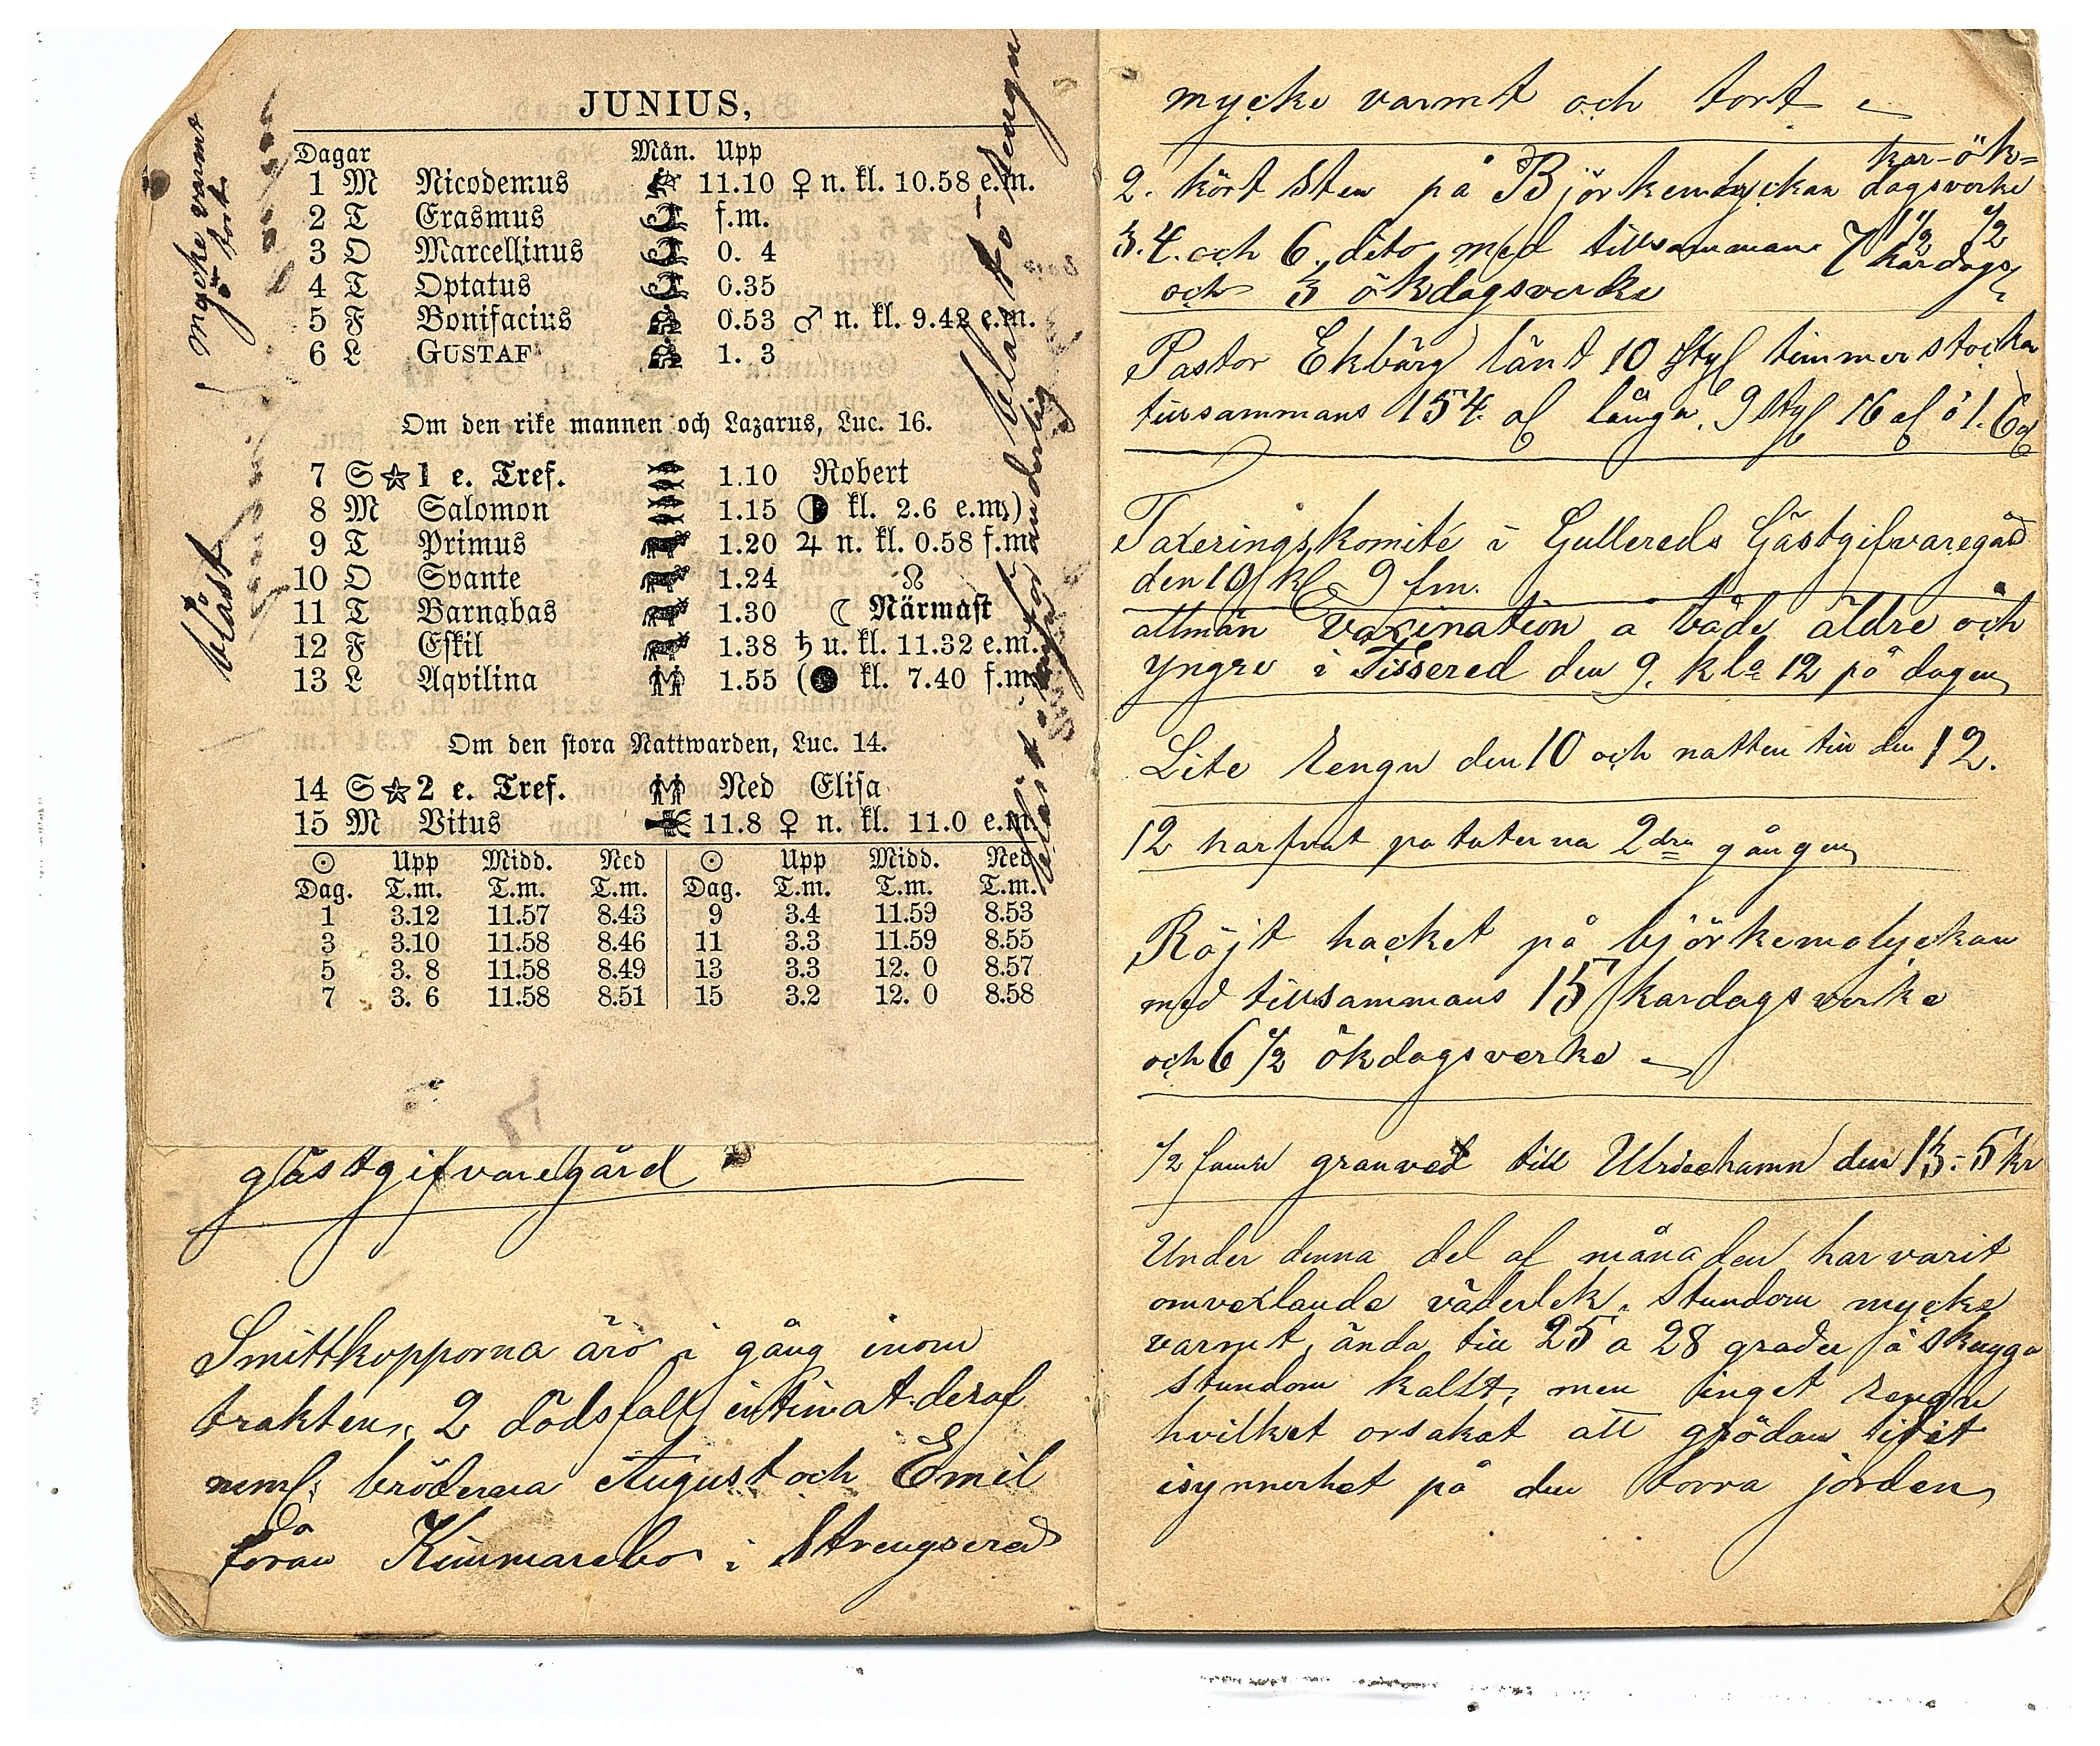 JUNIUS,
Dagar Mån. Upp
1 M Nicodemus 11.10 ♀ n. kl. 10.58 e.m.
2 T Erasmus f.m.
3 O Marcellinus 0. 4
4 T Optatus 0.35
5 F Bonifacius 0.53 ♂ n. kl. 9.42 e.m.
6 L GUSTAF 1. 3
Om den rike mannen och Lazarus, Luc. 16.
7 S ☆ 1 e. Tref. 1.10 Robert
8 M Salomon 1.15 ◑ kl. 2.6 e.m.)
9 T Primus 1.20 ♃ n. kl. 0.58 f.m.
10 O Svante 1.24 ☊
11 T Barnabas 1.30 ☾ Närmast
12 F Eskil 1.38 ♄ u. kl. 11.32 e.m.
13 L Aqvilina 1.55 (● kl. 7.40 f.m.
Om den stora Nattwarden, Luc. 14.
14 S ☆ 2 e. Tref. Ned Elisa
15 M Vitus 11.8 ♀ n. kl. 11.0 e.m.
☉ Upp Midd. Ned ☉ Upp Midd. Ned
Dag. T.m. T.m. T.m. Dag. T.m. T.m. T.m.
1 3.12 11.57 8.43 9 3.4 11.59 8.53
3 3.10 11.58 8.46 11 3.3 11.59 8.55
5 3. 8 11.58 8.49 13 3.3 12. 0 8.57
7 3. 6 11.58 8.51 15 3.2 12. 0 8.58
mycke varmt
o tort
blåst
blåst o rengn
gästgifvaregård
Smittkopporna äro i gång inom
trakten, 2 dödsfall intimat deraf
neml: bröderna August och Emil
från Kimmarebo i Strengsered
mycke varmt och tort
kar- ök=
2. kört sten på Björkemolyckan dagsverke
1 1/2 1/2
3. 4. och 6. dito med tillsammans 7 kardags
och 3 ökdagsverke
Pastor Ekbärg länt 10 sty timmerstocka
tillsammans 154 al långa, 9 sty 16 al o 1. 6 al
Taxeringskomité i Gullereds Gästgifvaregård
den 10 kl 9 fm.
allmän vaxination a både äldre och
yngre i Tissered den 9. kl 12 på dagen
Lite rengn den 10 och natten till den 12.
12 harfvat potaterna 2dra gången
Röjt hacket på björkemolyckan
med tillsammans 15 kardagsverke
och 6 1/2 ökdagsverke
1/2 famn granved till Ulricehamn den 13 - 5 kr
Under denna del af månaden har varit
omvexlande väderlek. Stundom mycke
varmt, ända till 25 a 28 grader i skugga
stundom kallt, men inget rengn
hvilket orsakat att grödan lidit
isynnerhet på den torra jorden